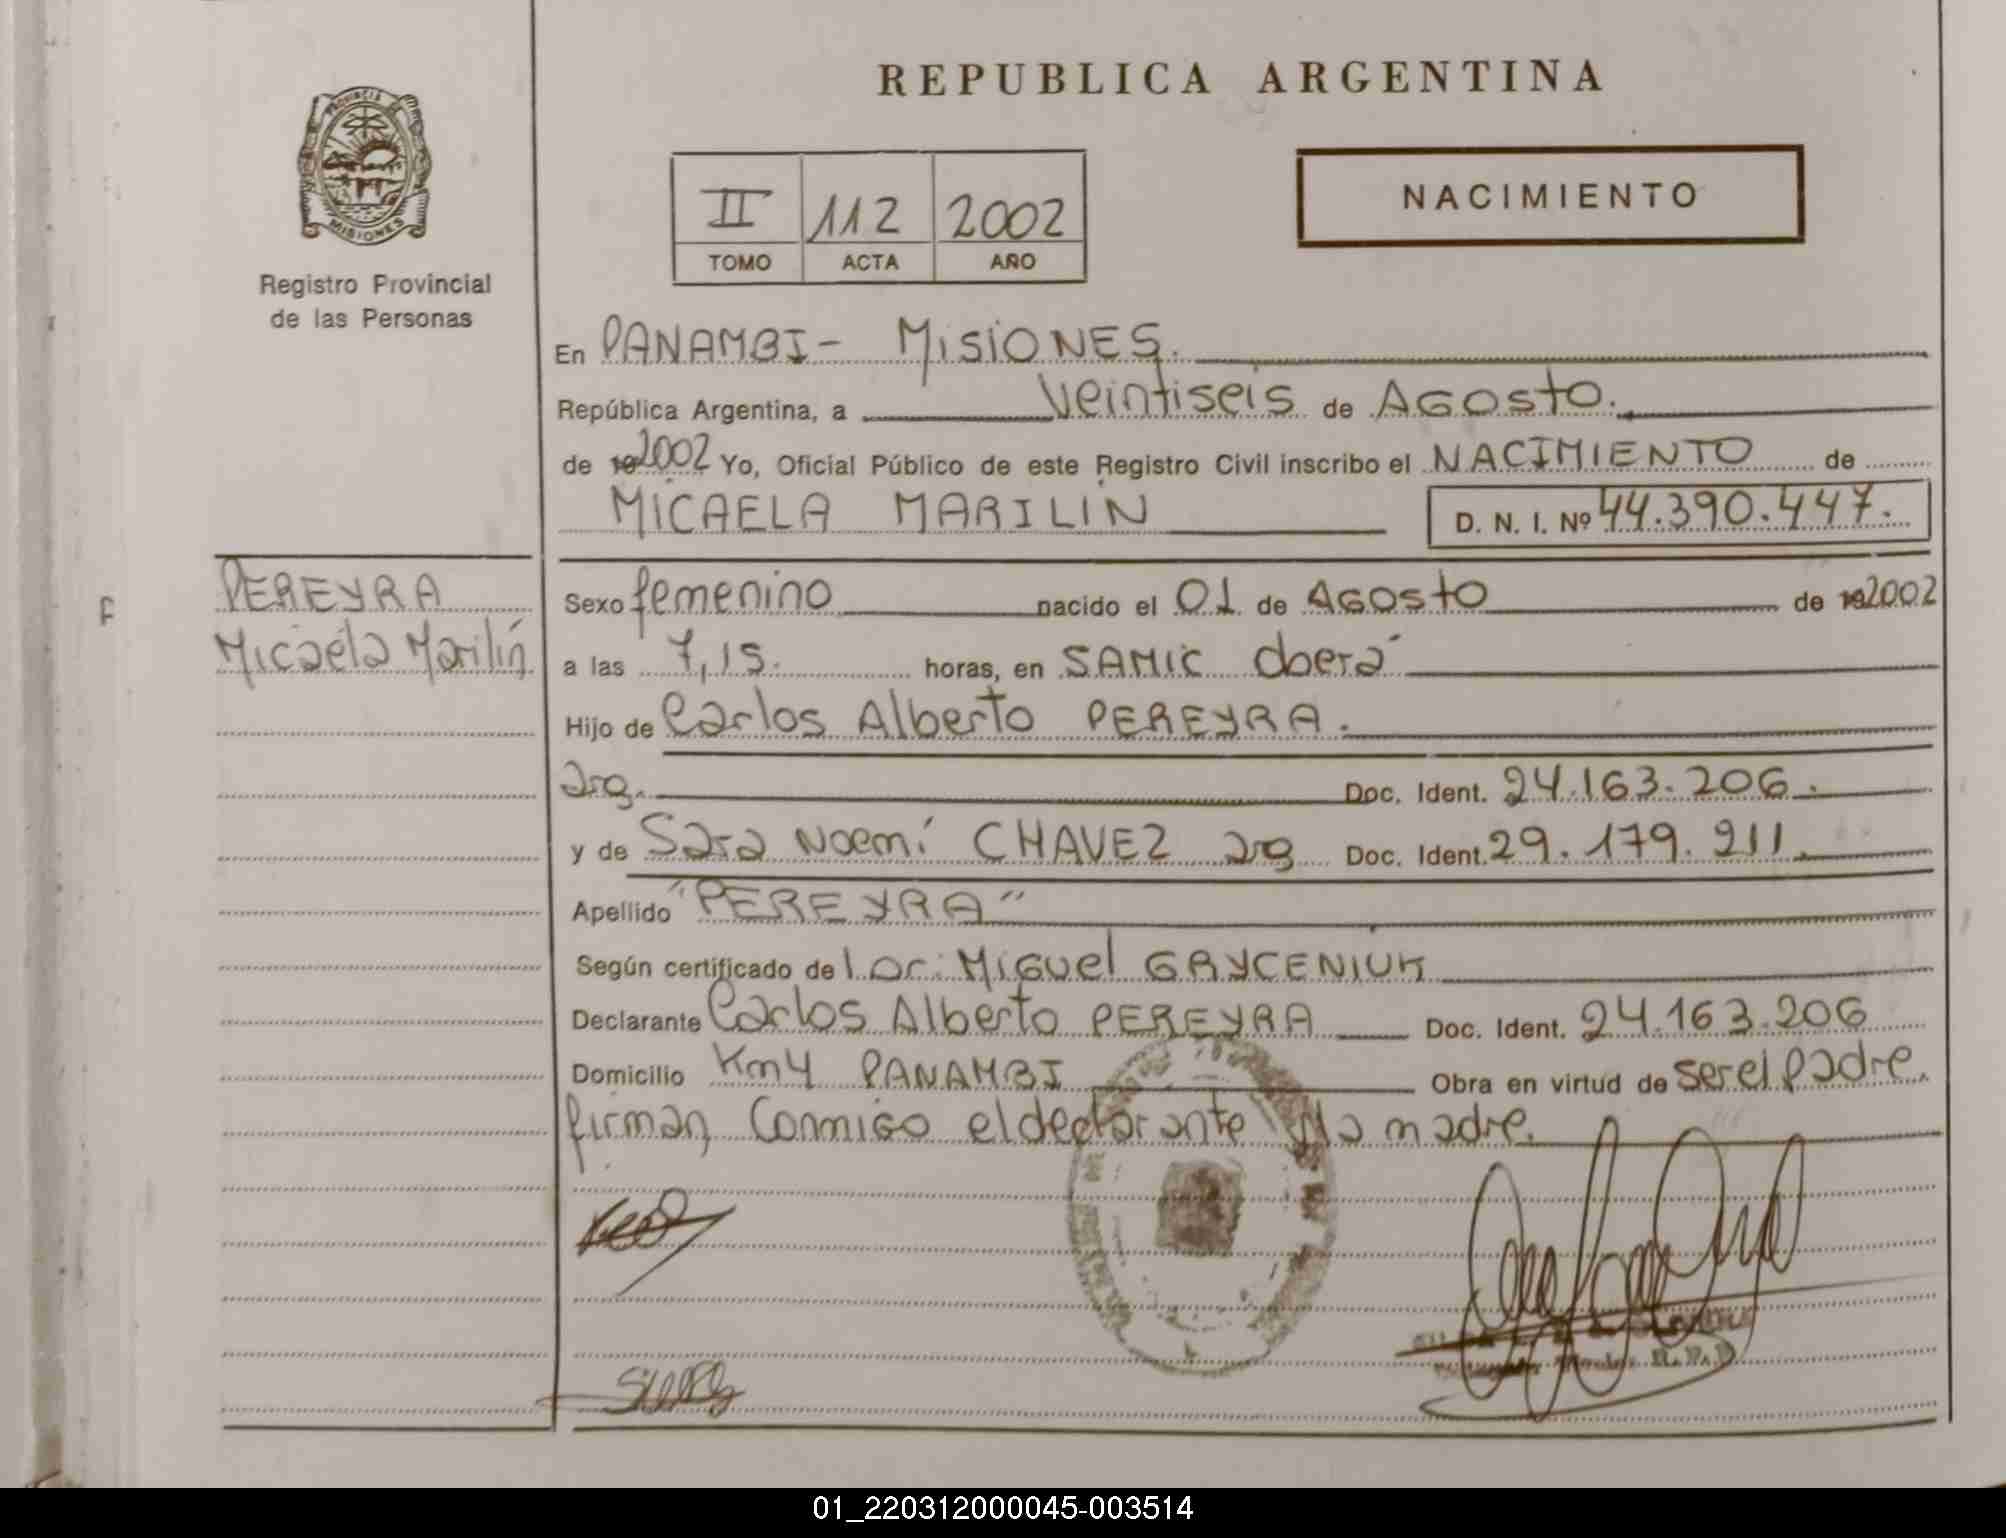 REPUBLICA ARGENTINA
PROVINCIA DE
MISIONES
Registro Provincial
de las Personas
II 112 2002
TOMO ACTA AÑO
NACIMIENTO
En PANAMBI - MISIONES.
República Argentina, a Veintiseis de AGOSTO.
de 192002 Yo, Oficial Público de este Registro Civil inscribo el NACIMIENTO de
MICAELA MARILIN D. N. I. Nº 44.390.447.
PEREYRA
Micaela Marilín
F
Sexo femenino nacido el 01 de AGOSTO de 192002
a las 7,15. horas, en SAMIC Oberá
Hijo de Carlos Alberto PEREYRA.
arg. Doc. Ident. 24.163.206.
y de Sara Noemí CHAVEZ arg Doc. Ident. 29.179.211.
Apellido "PEREYRA"
Según certificado de l Dr. Miguel GRYCENIUK
Declarante Carlos Alberto PEREYRA Doc. Ident. 24.163.206
Domicilio Km4 PANAMBI Obra en virtud de ser el padre.
firman Conmigo el declarante y la madre.
R.P.P
01_220312000045-003514